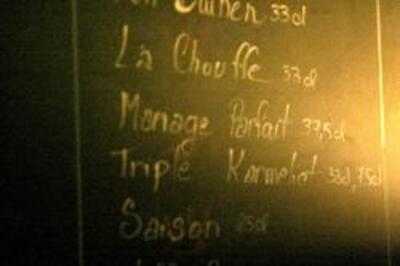 33cl
La Chouffe 33cl
Monage Parfait 37,5cl
Triple Karmeliet 33cl, 75cl
Saison 25cl